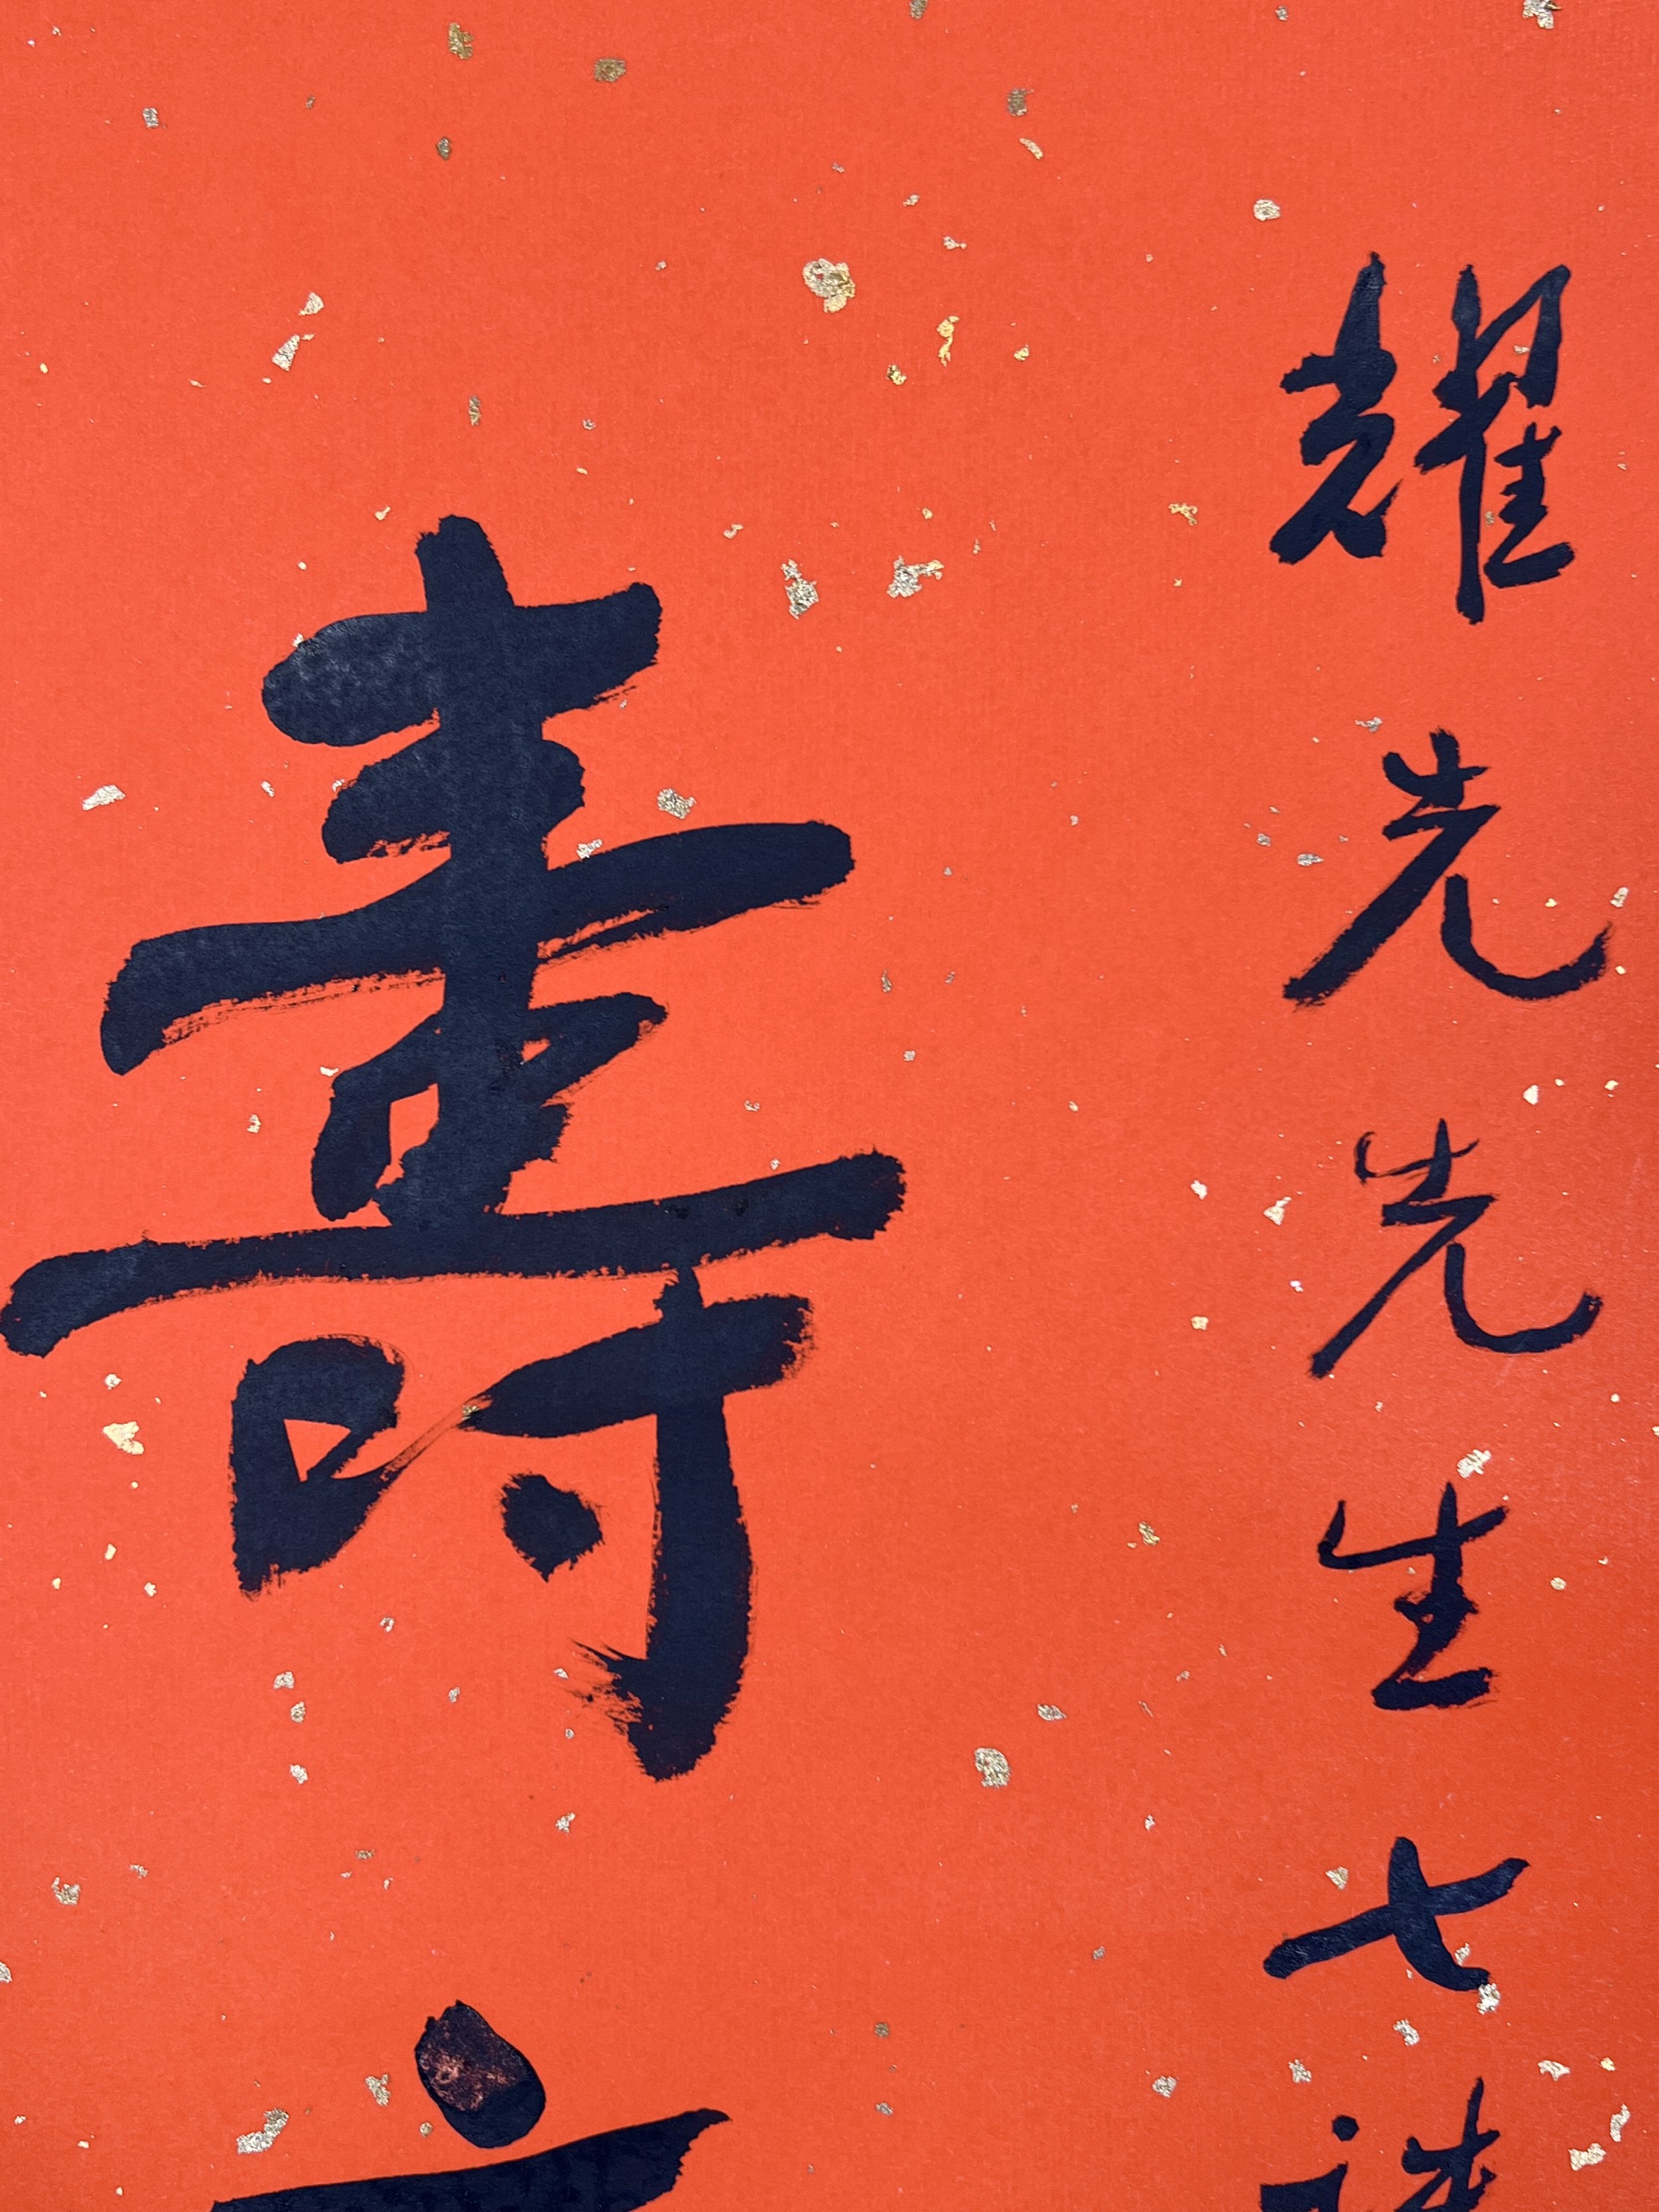 耀先先生七
壽